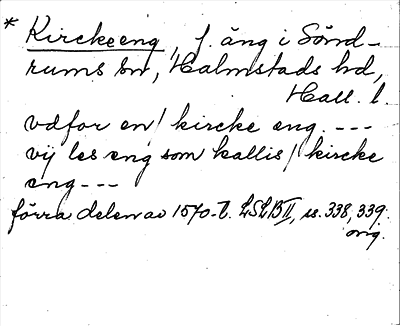 * Kirckeeng, f. äng i Sönd-
rums sn, Halmstads hd,
Hall. l.
vdfor en / kircke eng. ---
vij les eng som kallis / kircke
eng ---
förra delen av 1570-t. LSLB II, s. 338, 339.
orig.